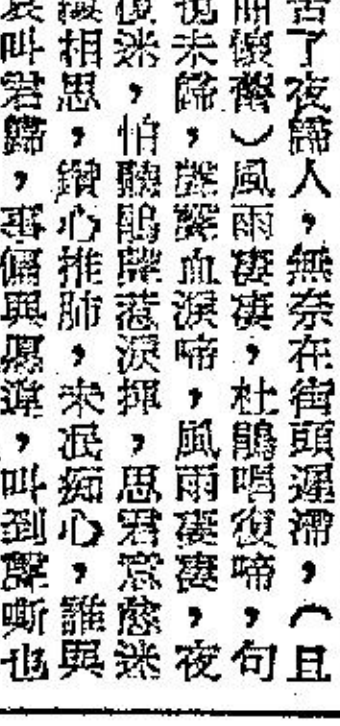 苦了夜歸人，無奈在街頭遲滯，（且
懷舊）風雨淒淒，杜鵑唱復啼，句
未歸，聲聲血淚啼，風雨淒淒，夜
迷，怕聽鵑聲惹淚揮，思君意愈迷
相思，鑽心推肺，未泯痴心，誰與
叫君歸，事偏與愿違，叫到聲嘶也